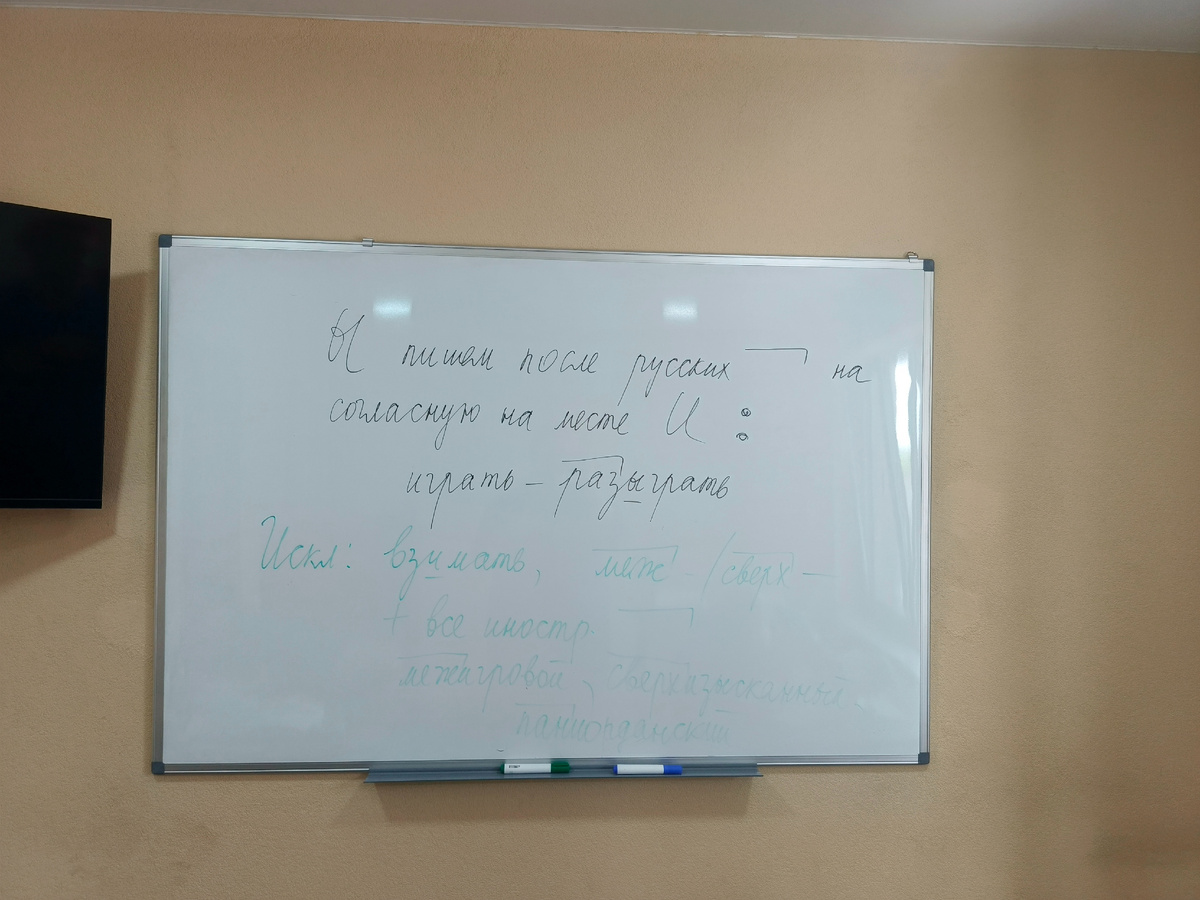 Ы пишем после русских ¬ на
согласную на месте И :
играть – разыграть
Искл: взимать, меж - / сверх –
+ все иностр. ¬
межигровой, сверхизысканный
паниорданский